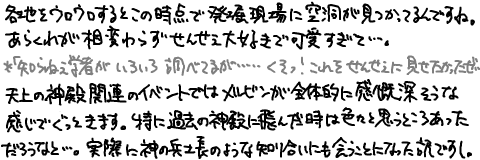 各地をウロウロするとこの時点で発掘現場に空洞が見つかってるんですね。
あらくれが相変わらずせんせえ大好きで可愛すぎて…。
*「知らねえ学者が いろいろ 調べてるが…… くそっ！これをせんせえに見せたかったぜ。
天上の神殿関連のイベントではメルビンが全体的に感慨深そうな
感じでぐっときます。特に過去の神殿に飛んだ時は色々と思うところあった
だろうなと…。実際に神の兵士長のような知り合いにも会うことになった訳ですし。